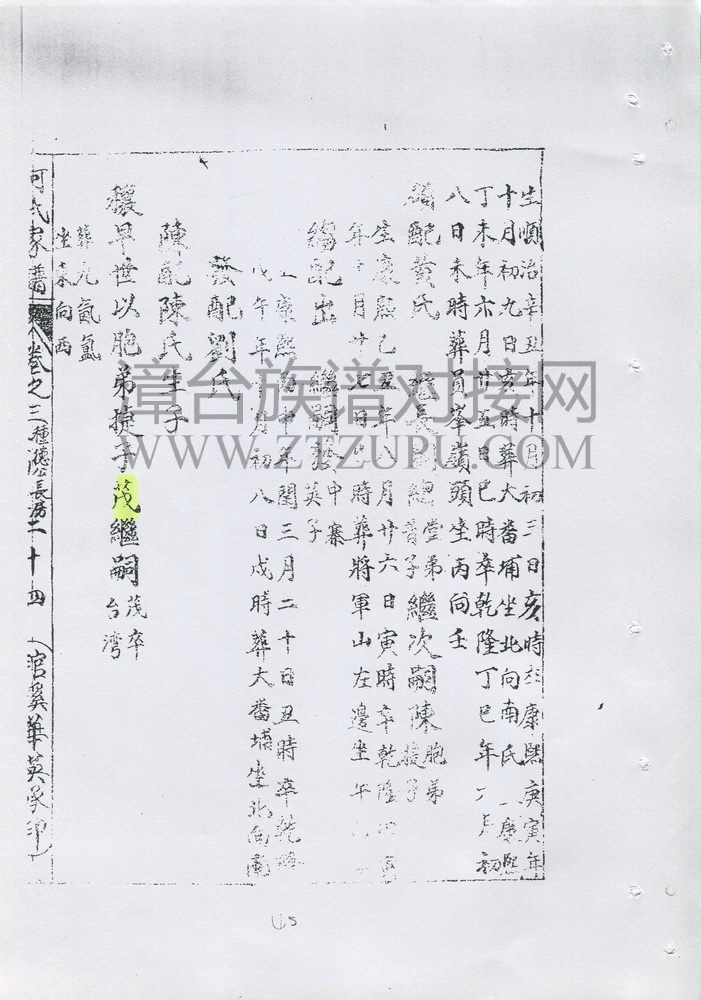 生順治辛丑年十月初三日亥時於康熙庚寅年
十月初九日亥時葬大番埔坐北向南氏康熙
丁未年六月廿五日巳時卒乾隆丁巳年月初
八日未時葬員峯嶺頭坐丙向壬
配黄氏 繼長嗣總堂弟音子繼次嗣陳胞弟捷子
生康熙己年八月廿六日寅時卒乾隆
年月廿七日時葬將軍山左邊坐午
配出 繼嗣發中寨英子
康熙年閏三月二十日丑時卒乾隆
戊午年月初八日戌時葬大番埔坐北向南
發配劉氏
陳配陳氏生子
穰早世以胞弟捷子茂繼嗣茂卒台湾
葬九氤氳
坐東向西
何氏家譜 卷之三種德公長房二十四 (官奚華英承印)
漳台族谱对接网
WWW.ZTZUPU.COM